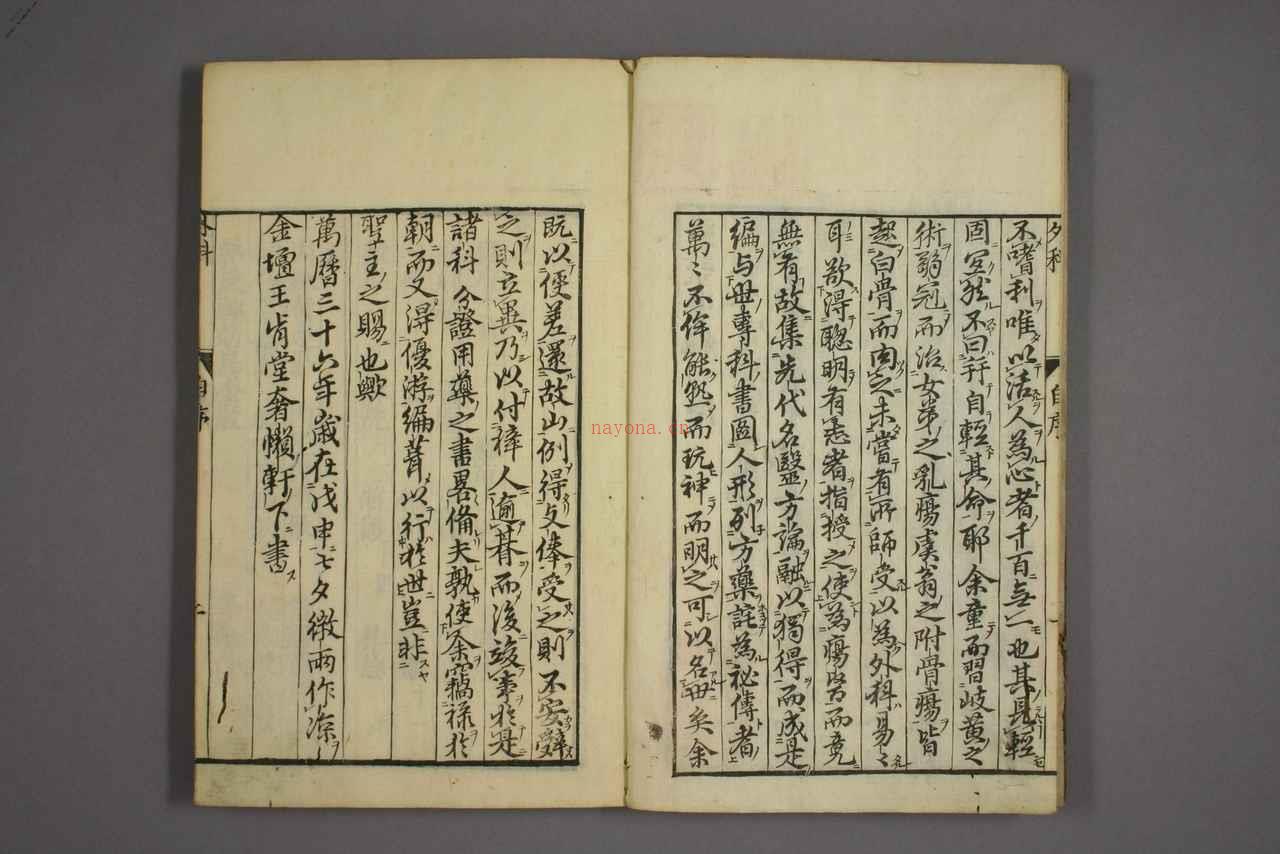 不嗜利唯以活人為心者千百無一也其見輕
固宜然不曰并自輕其命耶余童而習岐黃之
術弱冠而治女弟之乳瘍虞翁之附骨瘍皆
起白骨而肉之未嘗有所師受以為外科易々
耳欲得聰明有志者指授之使為瘍醫而竟
無有故集先代名醫方論融以獨得而成是
編与世專科書圖人形列方藥詫為祕傳者
萬々不侔能熟而玩神而明之可以名世矣余
既以便差還故山例得文俸受之則不安辭
之則立異乃以付梓人逾朞而後竣事於是
諸科分證用藥之書畧備夫孰使余竊祿於
朝而又得優游編葺以行於世豈非
聖主之賜也歟
萬曆三十六年歲在戊申七夕微雨作涼
金壇王肯堂奢懶軒下書
外科
自序
nayona.cn